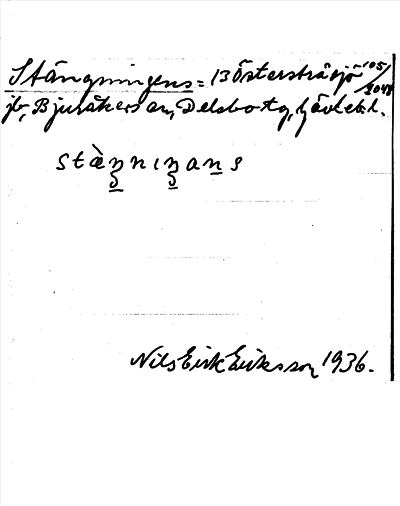 Stängningens = 13 Österstråsjö 105/2048
jb, Bjuråkers sn, Delsbo tg, Gävleb. l.
stàŋnıŋans
Nils Erik Eriksson 1936.